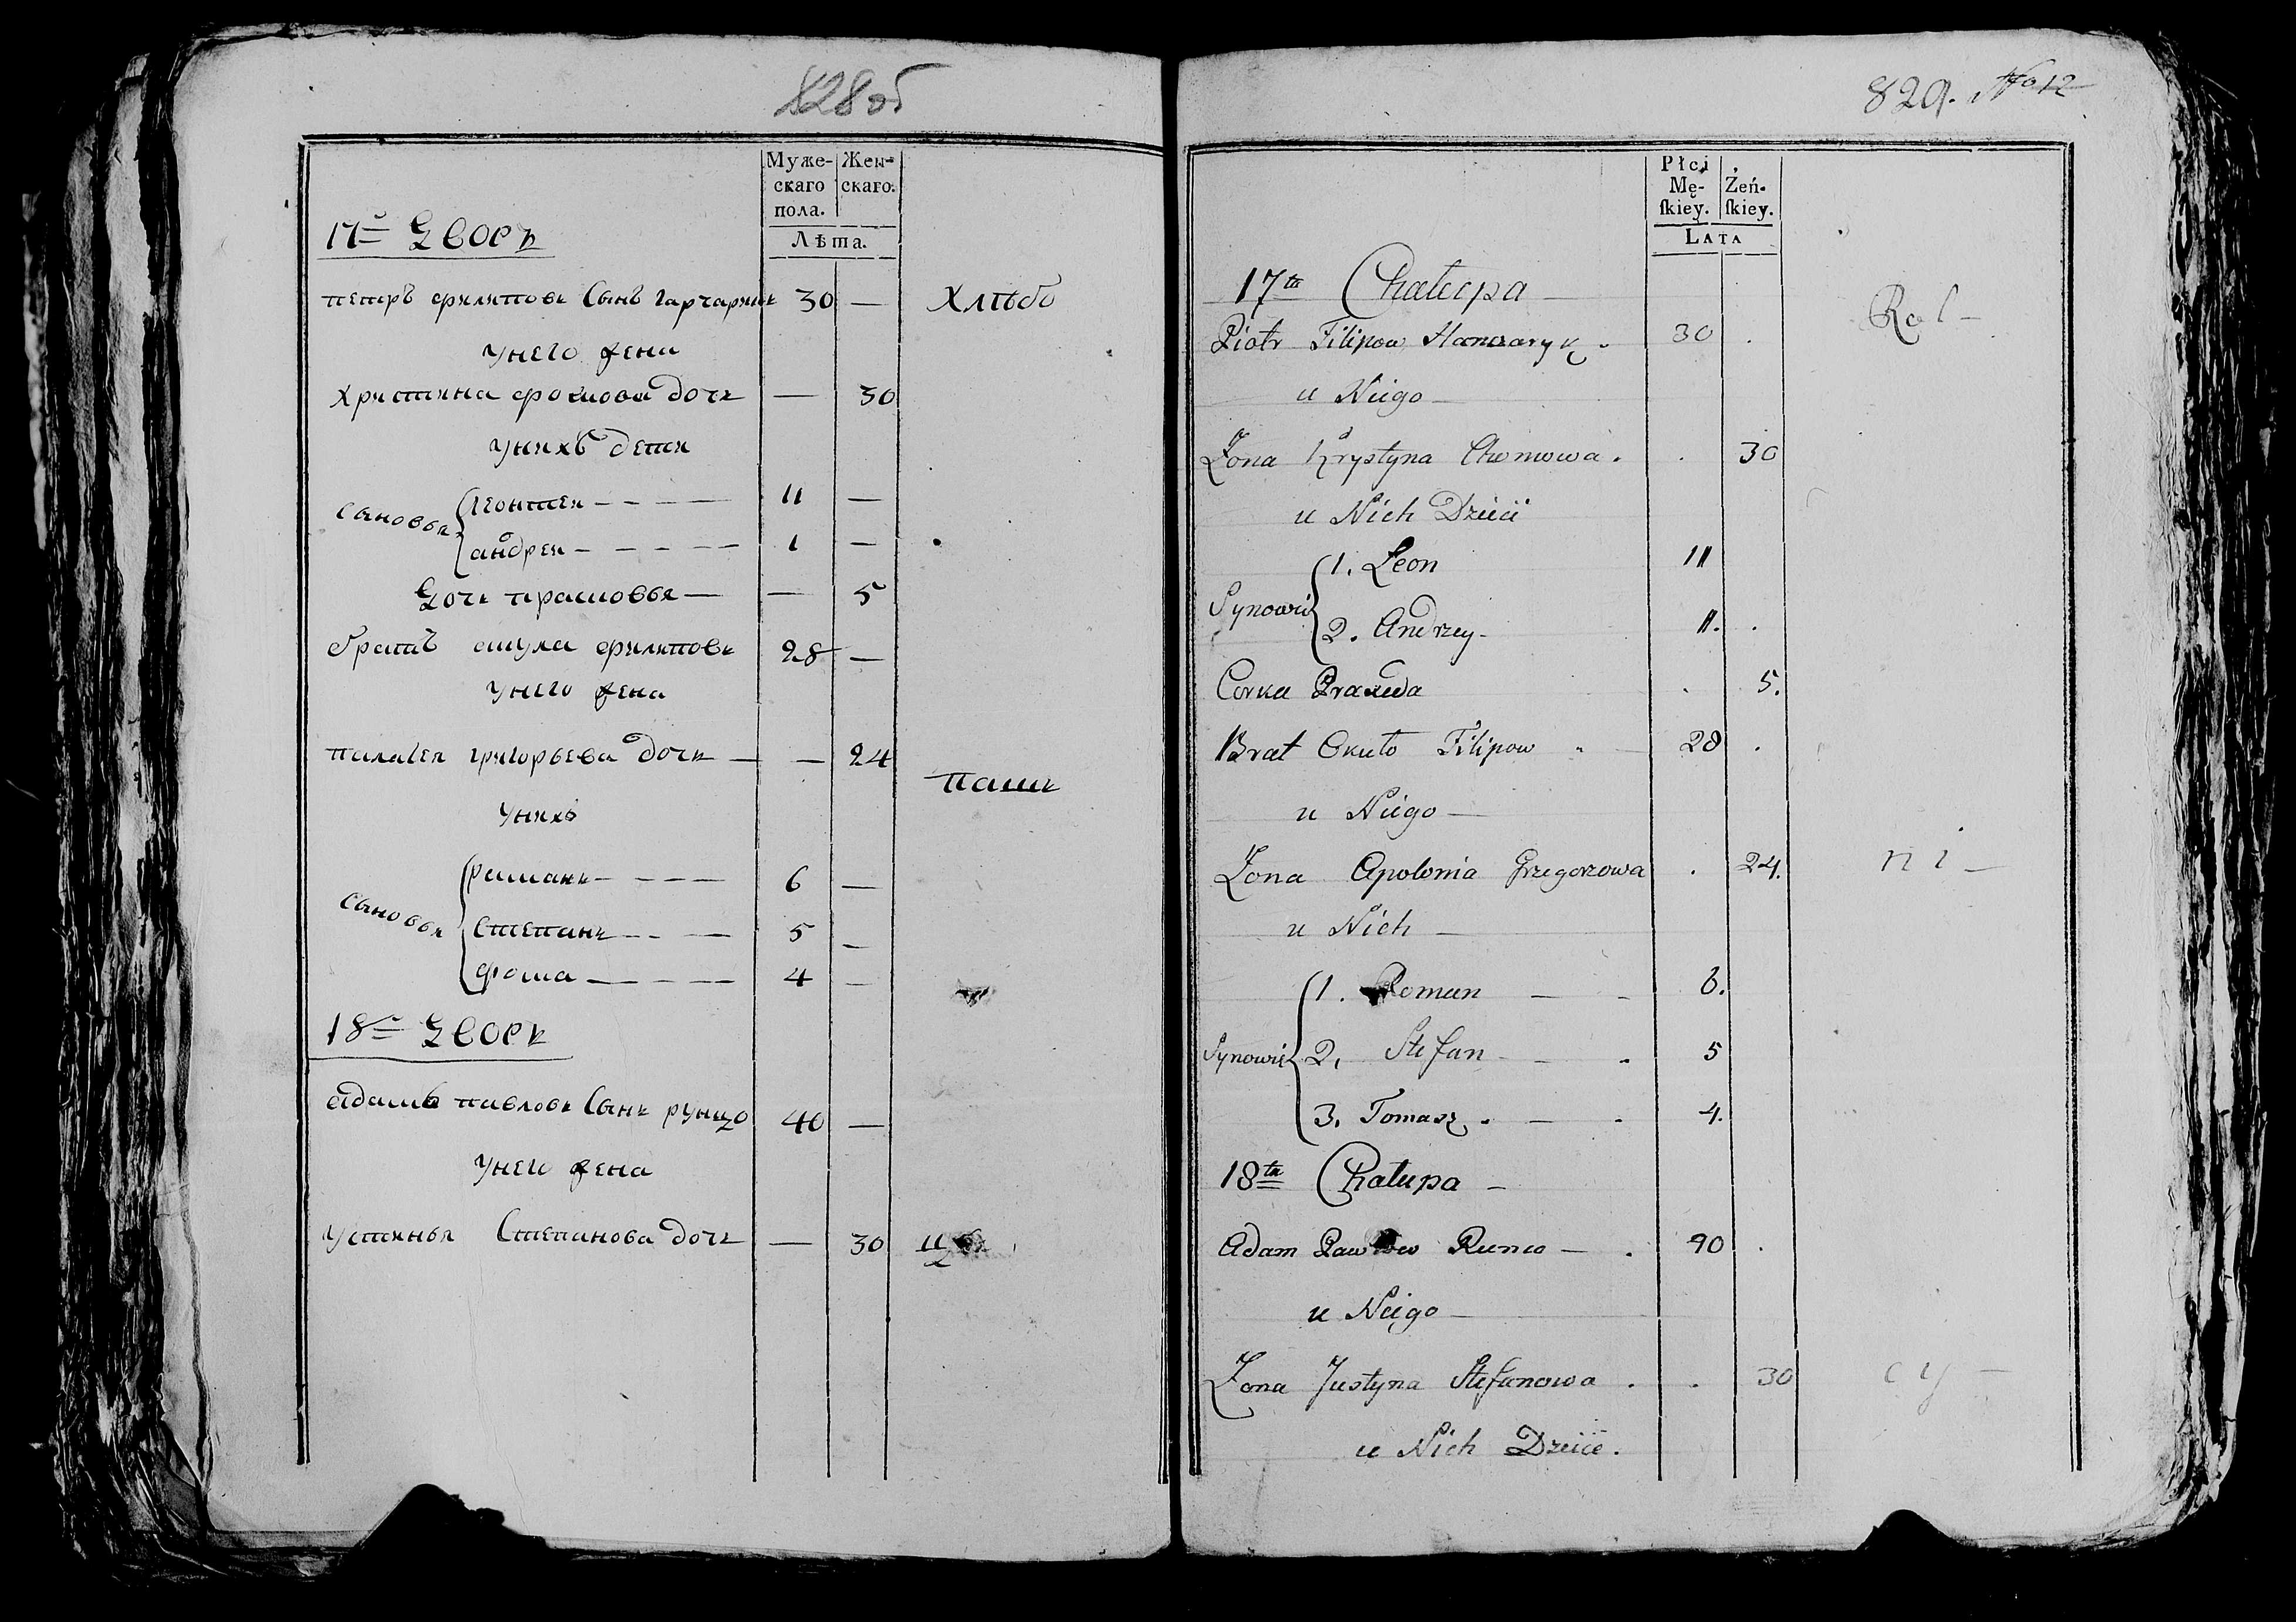 828об
Муже-
скаго
пола.
Жен-
скаго.
Лѣта.
17й Дворъ
петръ филиповъ Сынъ гарчарикъ 30 — Хлѣбо
унего жена
Христина фомова дочь — 30
унихъ дети
Сыновья
леонтеи 11 —
андреи 1 —
Дочь прасковья — 5
братъ акула филиповъ 28 —
унего жена
палагея григорьева дочь — 24
паш
унихъ
Сыновья
раманъ 6 —
Степанъ 5 —
фома 4 —
18й Дворъ
адамъ павловъ Сынъ рунцо 40 —
унего жена
устинья Степанова дочь — 30
829. No 12
Płci
Mę-
skiey.
Żeń-
skiey.
LATA
17ta Chałupa
Rol-
Piotr Filipow Hanczaryk 30 .
u Niego
Żona Krystyna Chomowa . . 30
u Nich Dzieci
Synowie
1. Leon 11
2. Andrzey 11. .
Corka Praxeda . 5.
Brat Okuło Filipow 28 .
u Niego
Żona Apolonia Grzegorzowa . 24. ni-
u Nich
Synowie
1. Roman 6.
2. Stefan 5
3. Tomasz 4.
18ta Chałupa
Adam Pawłow Runco 40 .
u Niego
Żona Justyna Stefanowa . . 30 cy-
u Nich Dzieci.